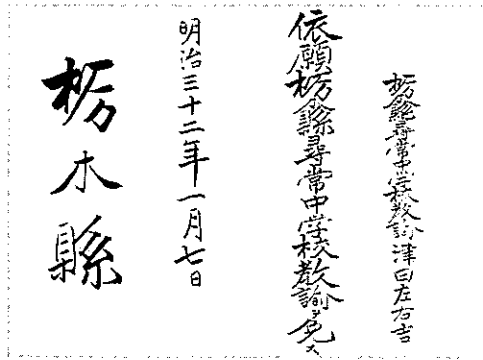 栃木縣尋常中学校教諭津田左右吉
依願栃木縣尋常中学校教諭ヲ免ス
明治三十二年一月七日
栃木縣